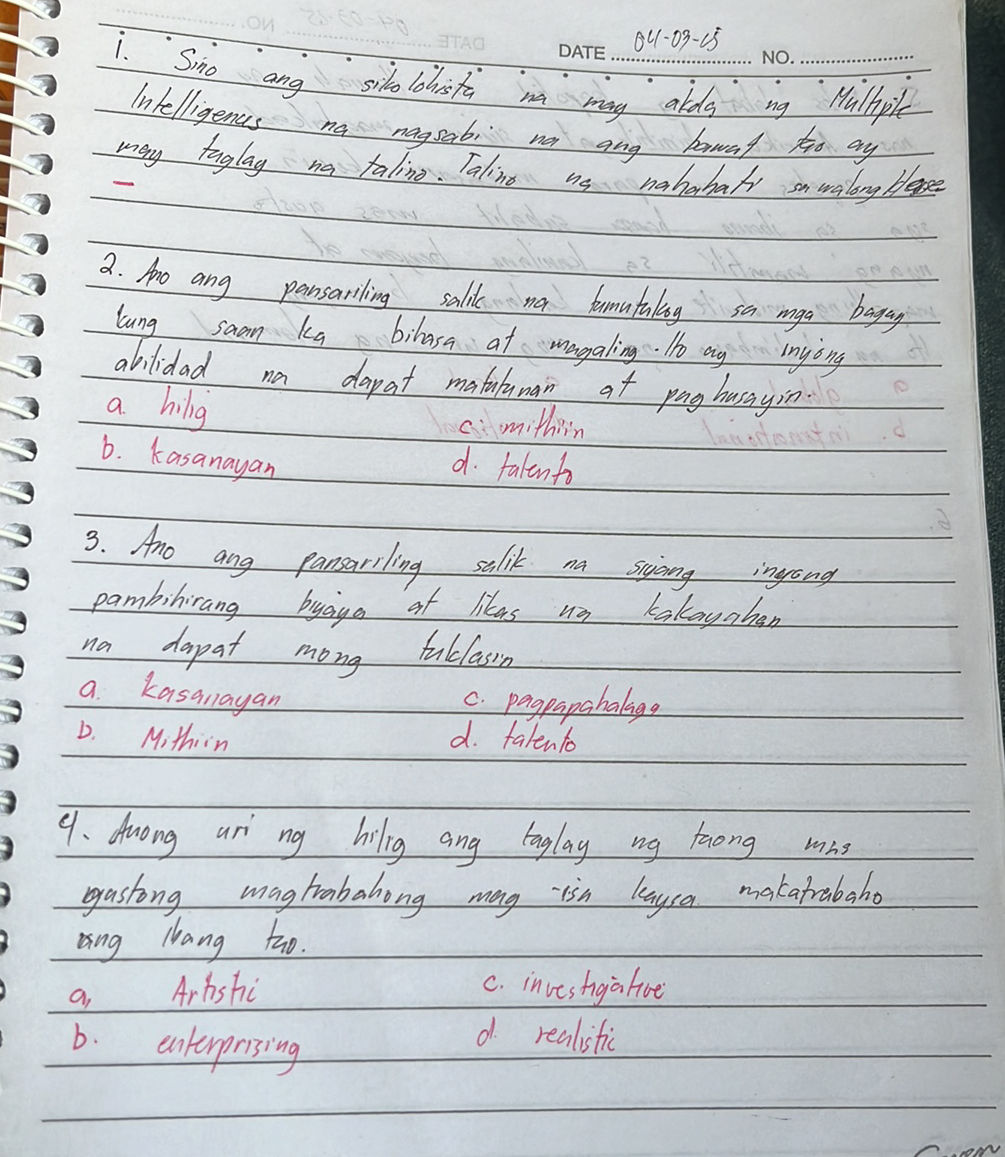 DATE 04-03-25 NO.
1. Sino ang sikolohista na may akda ng Multiple
Intelligences na nagsabi na ang bawat tao ay
may taglay na talino. Talino na nahahati sa walong
2. Ano ang pansariling salik na tumutukoy sa mga bagay
kung saan ka bihasa at magaling. Ito ay inyong
abilidad na dapat matutunan at paghusayin.
a. hilig c. mithiin
b. kasanayan d. talento
3. Ano ang pansariling salik na siyang inyong
pambihirang biyaya at likas na kakayahan
na dapat mong tuklasin
a. kasanayan c. pagpapahalaga
b. Mithiin d. talento
4. Anong uri ng hilig ang taglay ng taong mas
gustong magtrabahong mag-isa kaysa makatrabaho
ang ibang tao.
a, Artistic c. investigative
b. enterprizing d. realistic